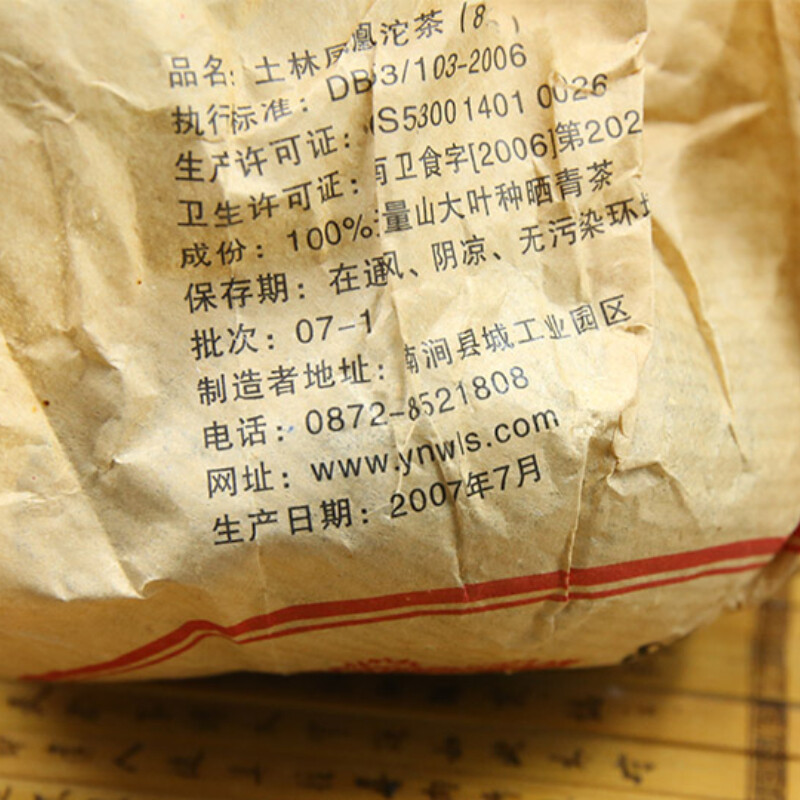 品名: 土林凤凰沱茶 (8
执行标准: DB53/103-2006
生产许可证: QS53001401 0026
卫生许可证: 南卫食字[2006]第202
成份: 100%无量山大叶种晒青茶
保存期: 在通风、阴凉、无污染环境
批次: 07-1
制造者地址: 南涧县城工业园区
电话: 0872-8521808
网址: www.ynwls.com
生产日期: 2007年7月